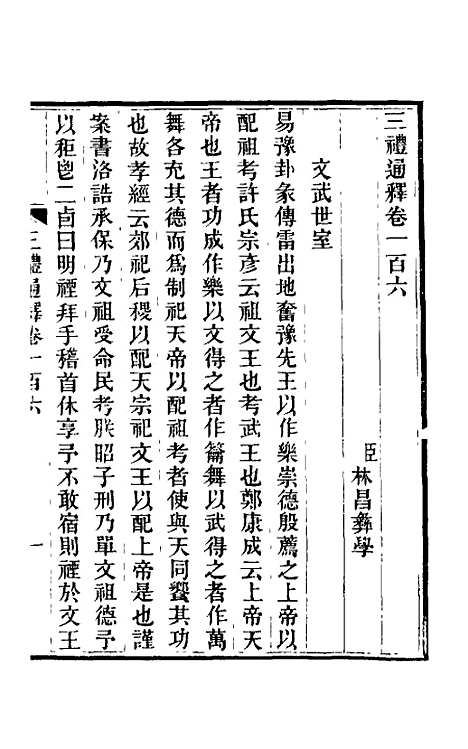 三禮通釋卷一百六
臣林昌彝學
文武世室
易豫卦象傳雷出地奮豫先王以作樂崇德殷薦之上帝以
配祖考許氏宗彥云祖文王也考武王也鄭康成云上帝天
帝也王者功成作樂以文得之者作籥舞以武得之者作萬
舞各充其德而為制祀天帝以配祖考者使與天同饗其功
也故孝經云郊祀后稷以配天宗祀文王以配上帝是也謹
案書洛誥承保乃文祖受命民考朕昭子刑乃單文祖德予
以秬鬯二卣曰明禋拜手稽首休享予不敢宿則禋於文王
三禮通釋卷一百六
一